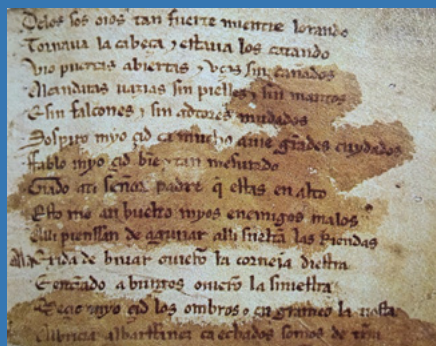 Delos sos oios tan fuerte mientre lorando
Tornaua la cabeça ⁊ estaua los catando
Vio puertas abiertas ⁊ vços sin cañados
Alcandaras uazias sin pielles ⁊ sin mantos
E sin falcones ⁊ sin adtores mudados
Sospiro myo çid ca mucho auie grãdes cuydados
Ffablo myo çid biẽ ⁊ tan mesurado
Grado ati señor padre q̃ estas en alto
Esto me an buelto myos enemigos malos
Alli pienssan de aguijar alli sueltã las Riendas
Ala exida de biuar ouierõ la corneja diestra
E entrãdo a burgos ouierõ la siniestra
Meçio myo çid los ombros ⁊ en grameo la tiesta
Albricia albarffanez ca echados somos de tierra